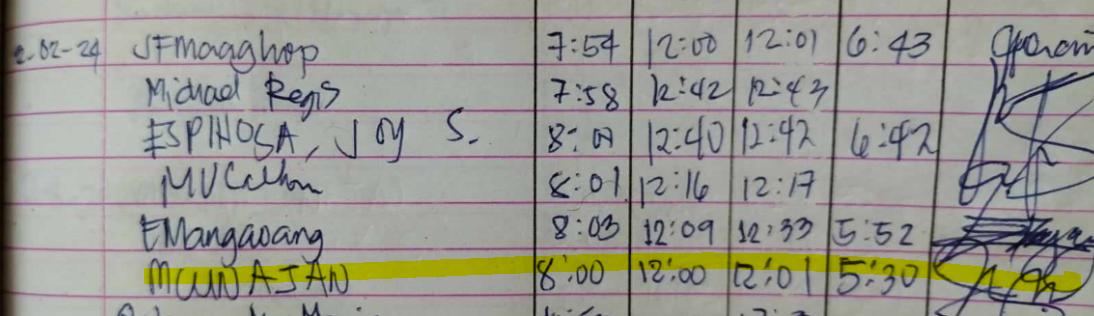 02-24 JFmaghop 7:54 12:00 12:01 6:43
Michael Regis 7:58 12:42 12:43
ESPINOSA, Joy S. 8:01 12:40 12:42 6:42
8:01 12:16 12:17
EMangaoang 8:03 12:09 12:33 5:52
8:00 12:00 12:01 5:30